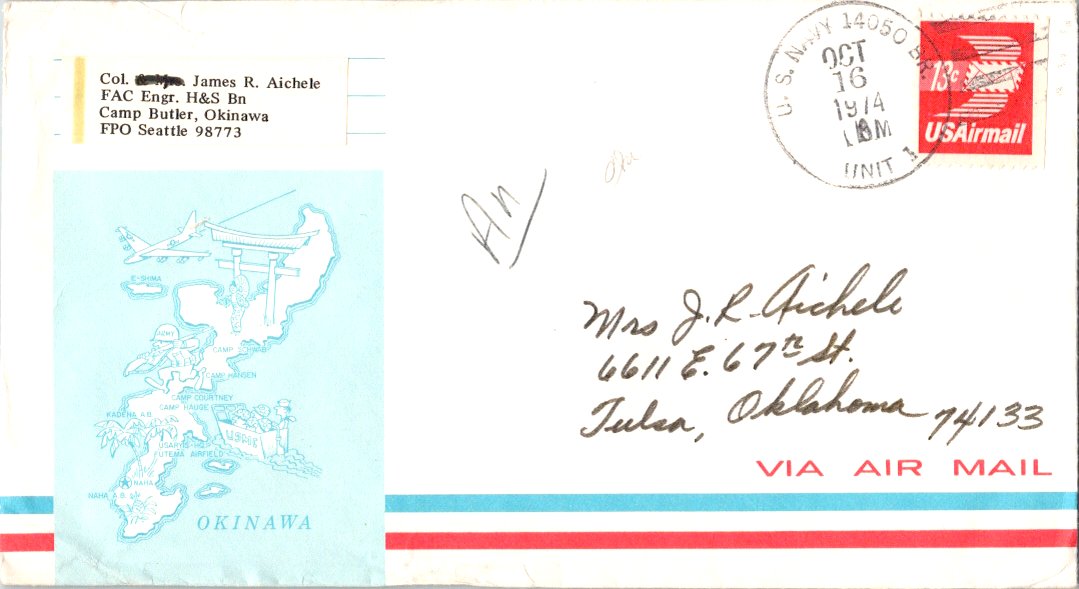 Col. & Mrs. James R. Aichele
FAC Engr. H&S Bn
Camp Butler, Okinawa
FPO Seattle 98773
U. S. NAVY 14050 BR.
OCT
16
1974
M
UNIT 1
13c
USAirmail
An
Mrs J. R. Aichele
6611 E. 67th St.
Tulsa, Oklahoma 74133
VIA AIR MAIL
IE-SHIMA
ARMY
CAMP SCHWAB
CAMP HANSEN
CAMP COURTNEY
CAMP HAUGE
KADENA A.B.
USMC
UTEMA AIRFIELD
NAHA
NAHA A.B.
OKINAWA